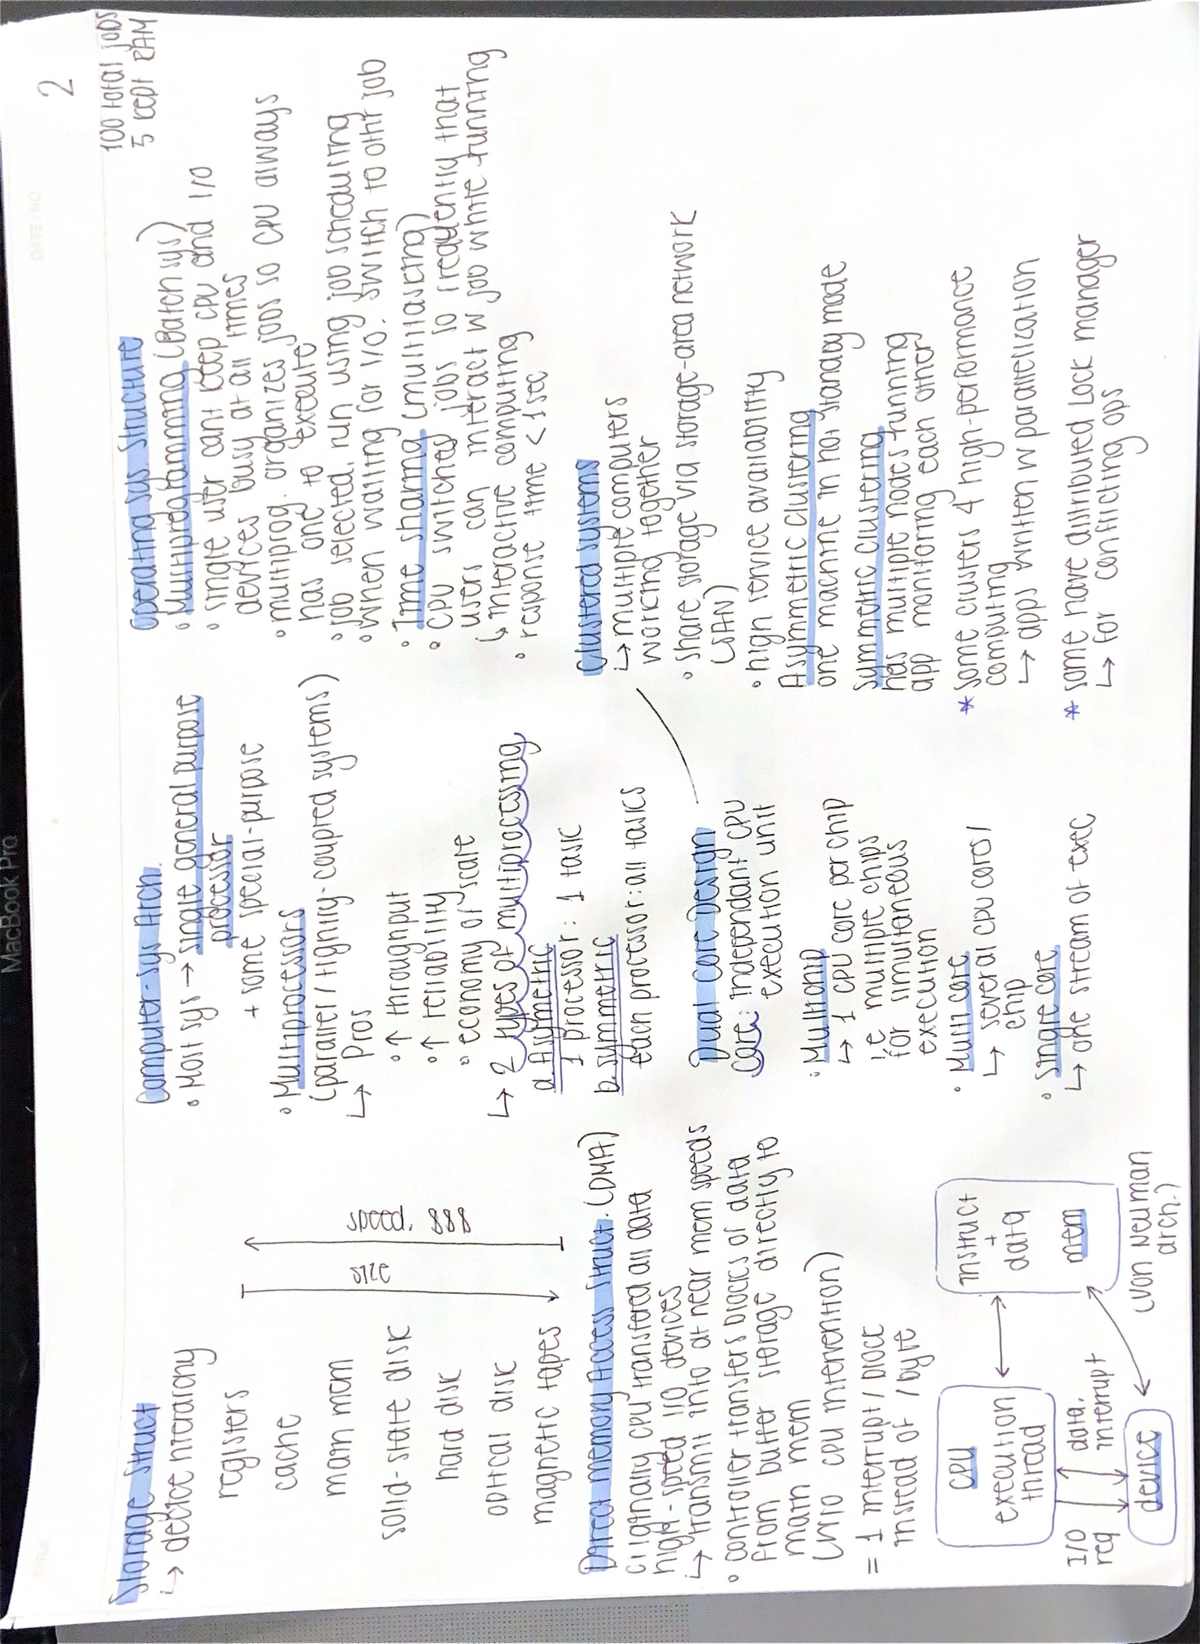 MacBook Pro
TITLE
DATE/NO
2
Storage Struct
↳ device hierarchy
registers
cache
main mem
solid-state disk
hard disk
optical disk
magnetic tapes
size
speed, $$$
Direct memory Access Struct. (DMA)
originally CPU transfered all data
high-speed I/O devices
↳ transmit info at near mem speeds
• controller transfers blocks of data
from buffer storage directly to
main mem
(no CPU intervention)
= 1 interrupt / block
instead of / byte
CPU
execution
thread
instruct
+
data
mem
I/O
req
data,
interrupt
device
(von Neuman
arch.)
Computer-sys Arch.
• Most sys → single general purpose
processor
+ some special-purpose
• Multiprocessors
(parallel / tighlty-coupled systems)
↳ Pros
• ↑ throughput
• ↑ reliability
• economy of scale
↳ 2 types of multiprocessing
a. Asymetric
1 processor: 1 task
b. symmetric
each processor: all tasks
Dual Core Design
Core: independant CPU
execution unit
• Multichip
↳ 1 CPU core per chip
i.e multiple chips
for simultaneous
execution
• Multi core
↳ several CPU cores /
chip
• Single core
↳ one stream of exec
Operating sys Structure
100 total jobs
5 kept RAM
• Multiprogramming (Batch sys)
• single user cant keep CPU and I/O
devices busy at all times
• multiprog. organizes jobs so CPU always
has one to execute
• job selected, run using job scheduling
• When waiting for I/O. Switch to othr job
• Time sharing (multitasking)
• CPU switches jobs so frequently that
users can interact w job while running
↳ interactive computing
• response time < 1 sec
Clustered systems
↳ multiple computers
working together
• share storage via storage-area network
(SAN)
• high service availability
Asymmetric Clustering
one machine in hot standby mode
Symmetric Clustering
has multiple nodes running
app monitoring each other
* some clusters 4 high-performance
computing
↳ apps written w parallelization
* some have distributed lock manager
↳ for conflicting ops